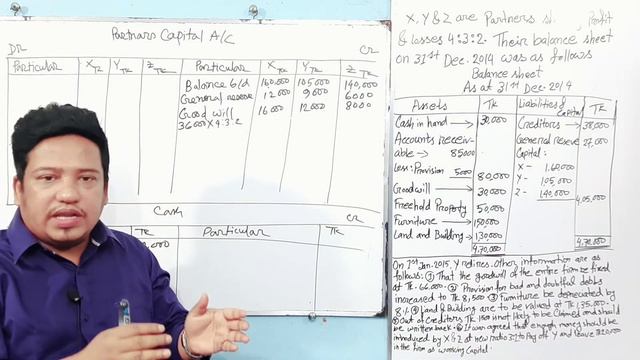 Partners Capital A/C
DR
CR
Particular X TK Y TK Z TK Particular X TK Y TK Z TK
Balance b/d 160,000 105,000 140,000
General reserve 12000 9000 6000
Good will 16000 12000 8000
36000 x 4:3:2
Cash
CR
TK Particular TK
X, Y & Z are Partners Profit
& losses 4:3:2. Their balance sheet
on 31st Dec. 2014 was as follows
Balance sheet
As at 31st Dec-2014
Assets TK Liabilities & Capital TK
Cash in hand → 30,000 Creditors → 38,000
Accounts receiv- General reserve 27,000
able → 85000 Capital:
Less: Provision 5000 80,000 X - 1,60,000
Y - 1,05,000
Goodwill → 30,000 Z - 140,000 4,05,000
Freehold Property 50,000
Furniture → 150,000
Land and Building → 130,000
4,70,000 4,70,000
On 1st Jan-2015, Y retires. Other information are as
follows: ① That the goodwill of the entire firm be fixed
at TK. 66,000. ② Provision for bad and doubtful debts
increased to TK 8,500 ③ Furniture be depreciated by
8% ④ Land & Building are to be valued at TK 1,75,000
⑤ Out of Creditors TK not likely to be claimed and should
be written back. ⑥ It was agreed that enough money should be
introduced by X & Z at new ratio 3:2 to Pay off Y and leave
in the firm as working Capital.